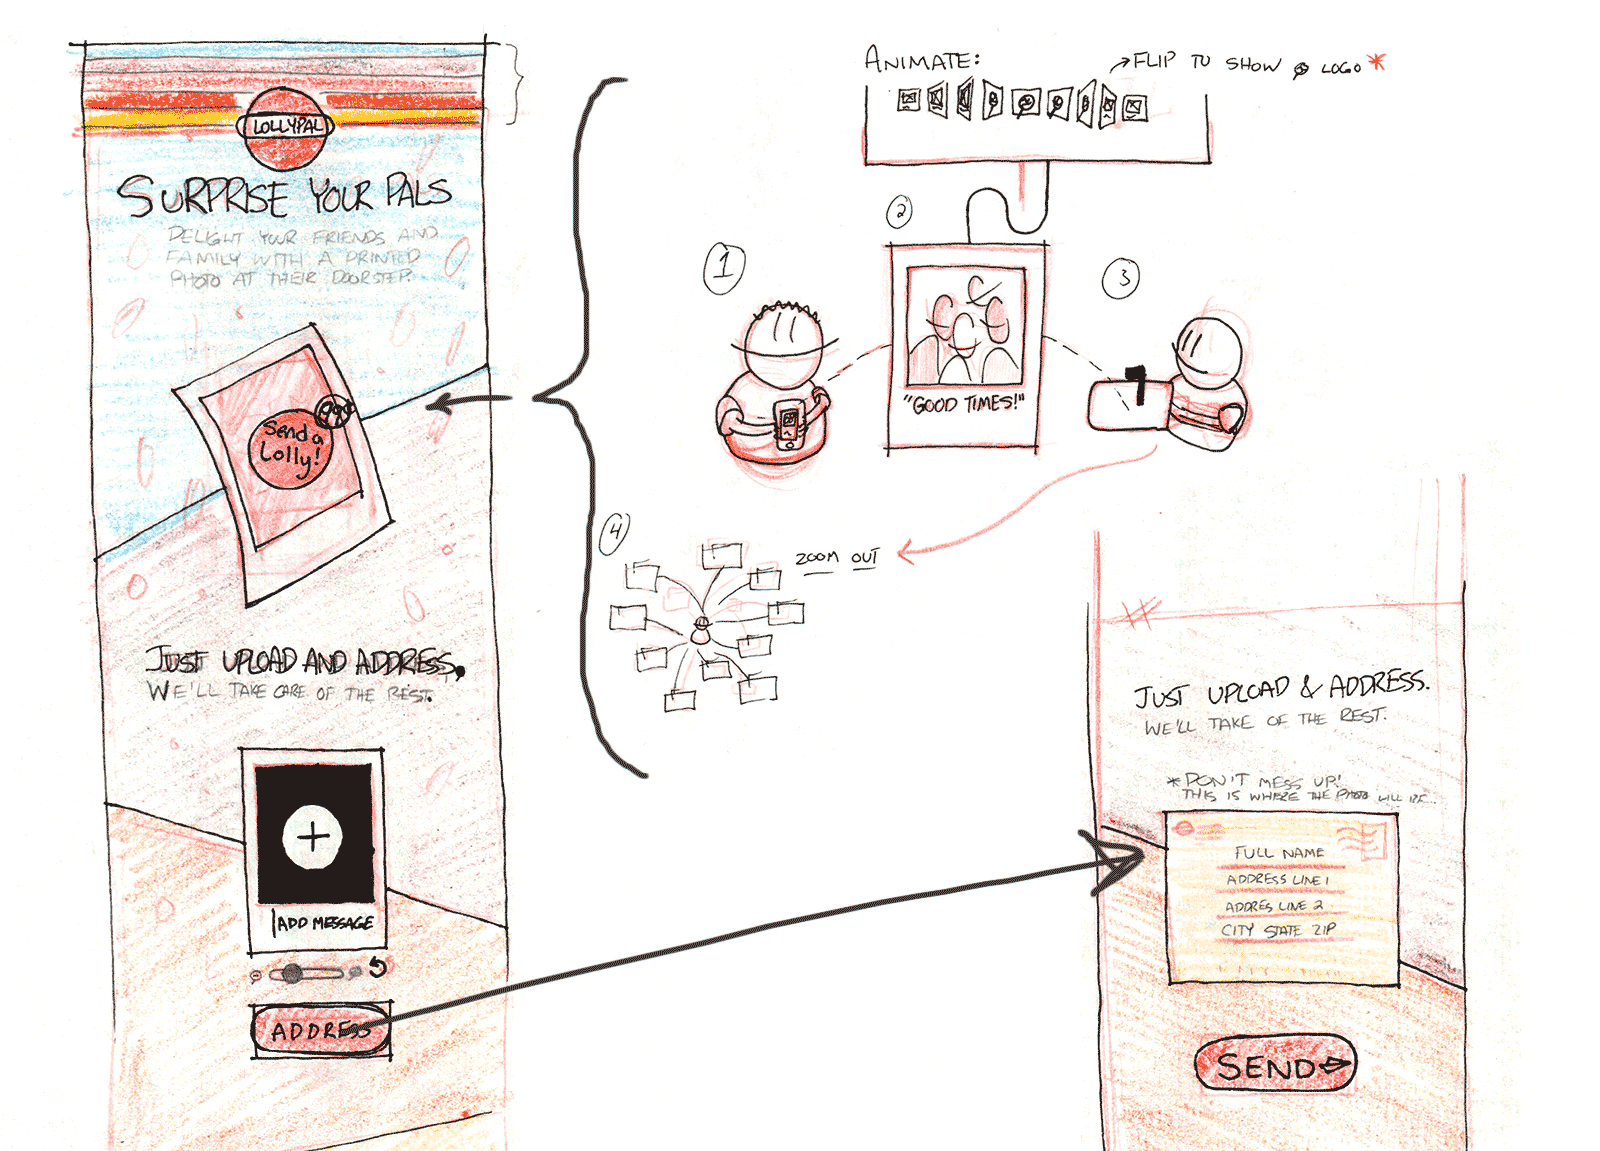 LOLLYPAL
SURPRISE YOUR PALS
DELIGHT YOUR FRIENDS AND
FAMILY WITH A PRINTED
PHOTO AT THEIR DOORSTEP.
Send a
Lolly!
JUST UPLOAD AND ADDRESS,
WE'LL TAKE CARE OF THE REST.
+
ADD MESSAGE
ADDRESS
ANIMATE:
FLIP TO SHOW LOGO *
1
2
"GOOD TIMES!"
3
4
ZOOM OUT
JUST UPLOAD & ADDRESS.
WE'LL TAKE OF THE REST.
*DON'T MESS UP!
THIS IS WHERE THE PHOTO WILL BE...
FULL NAME
ADDRESS LINE 1
ADDRES LINE 2
CITY STATE ZIP
SEND